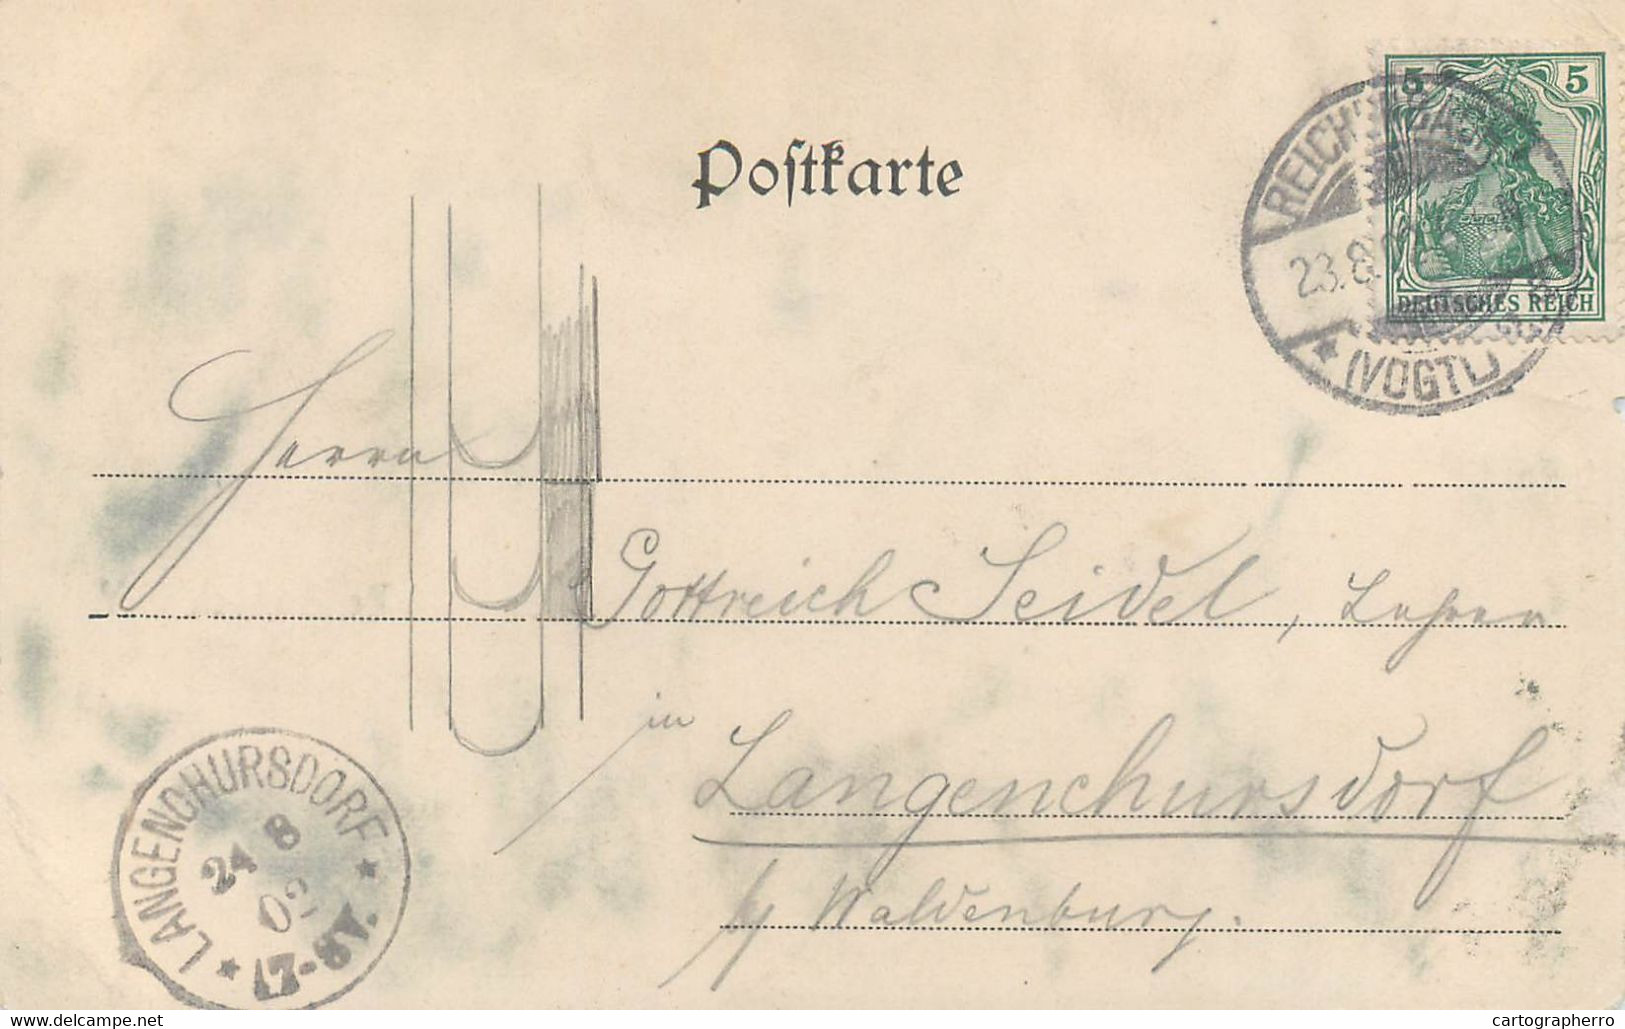 Postkarte
5 5
DEUTSCHES REICH
23.8.
(VOGTL)
Herrn
Gottreich Seidel, Lehrer
in
Langenchursdorf
b/ Waldenburg.
LANGENCHURSDORF
24 8
02
7-8V.
www.delcampe.net
cartographerro